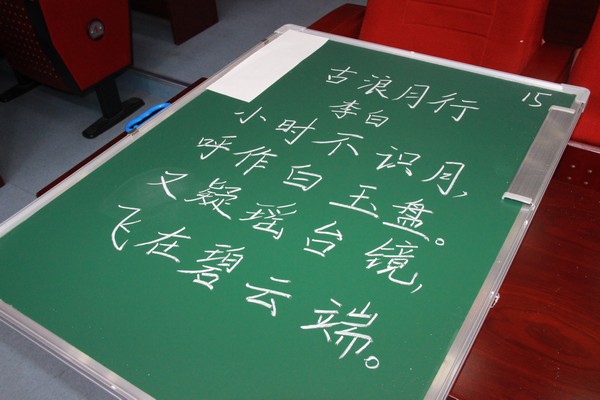 古浪月行
15
李白
小时不识月,
呼作白玉盘。
又疑瑶台镜,
飞在碧云端。